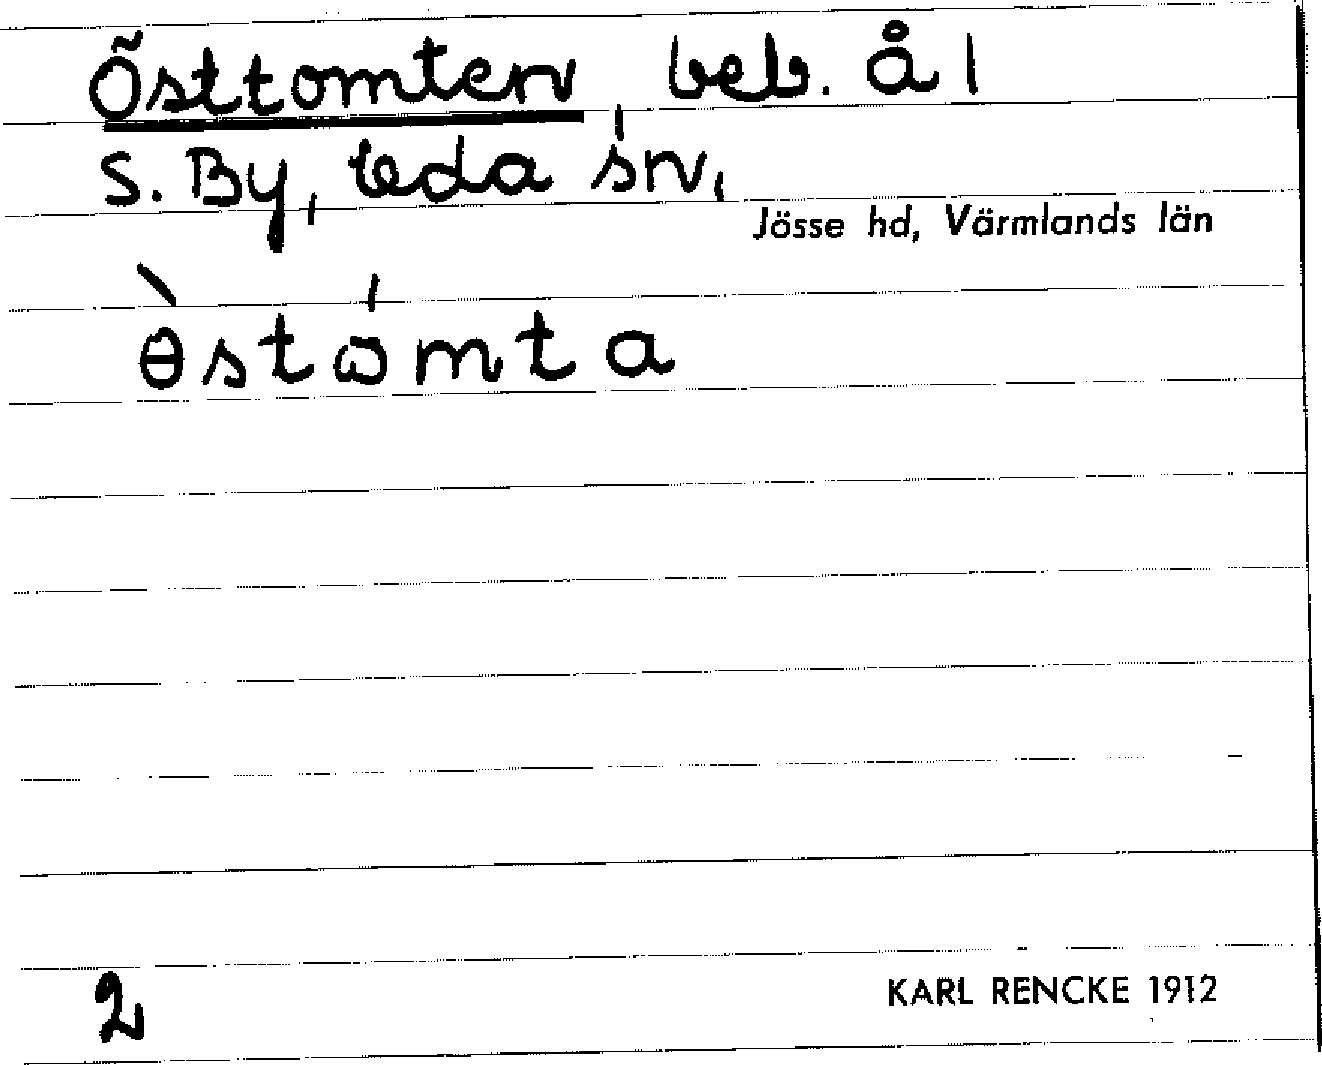 Östtomten, beb. å 1
S. By, Eda sn,
Jösse hd, Värmlands län
ɵ̀stɷ́mta
2
KARL RENCKE 1912